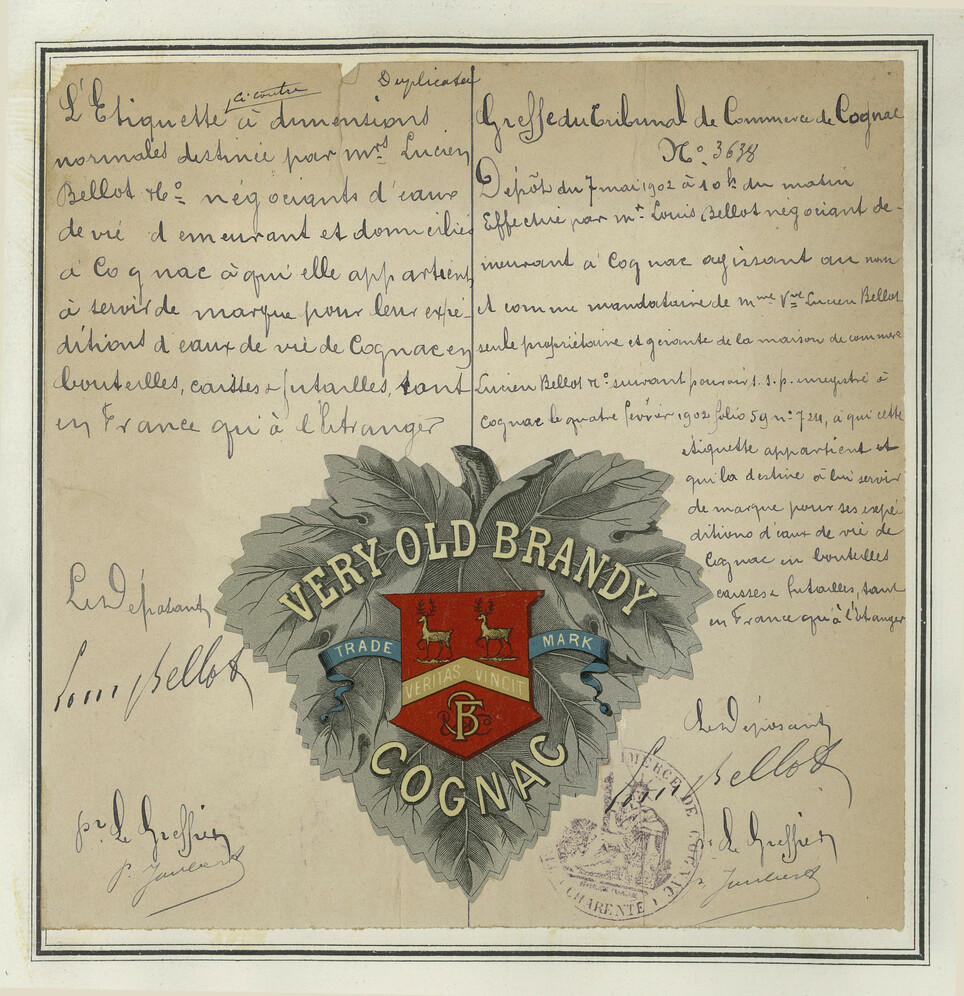 Duplicata
L'Etiquette ci-contre à dimensions
normales destinée par mrs Lucien
Bellot & Co négociants d'eaux
de vie demeurant et domiciliés
à Cognac à qui elle appartient,
à servir de marque pour leur expé-
ditions d'eaux de vie de Cognac en
bouteilles, caisses & futailles, tant
en France qu'à l'étranger
Le Déposant
Louis Bellot
pr Le Greffier
Greffe du Tribunal de Commerce de Cognac
No 3638
Dépôt du 7 mai 1902 à 10h du matin
Effectué par mr Louis Bellot négociant de-
meurant à Cognac agissant au nom
et comme mandataire de mme Vve Lucien Bellot
seule propriétaire et gérante de la maison de commerce
Lucien Bellot & Co suivant pouvoir s.s.p. enregistré à
Cognac le quatre février 1902 folio 59 no 724, à qui cette
étiquette appartient et
qui la destine à lui servir
de marque pour ses expé
ditions d'eaux de vie de
Cognac en bouteilles
caisses & futailles, tant
en France qu'à l'étranger
Le Déposant
Louis Bellot
pr Le Greffier
VERY OLD BRANDY
TRADE MARK
VERITAS VINCIT
COGNAC
COMMERCE DE COGNAC
CHARENTE